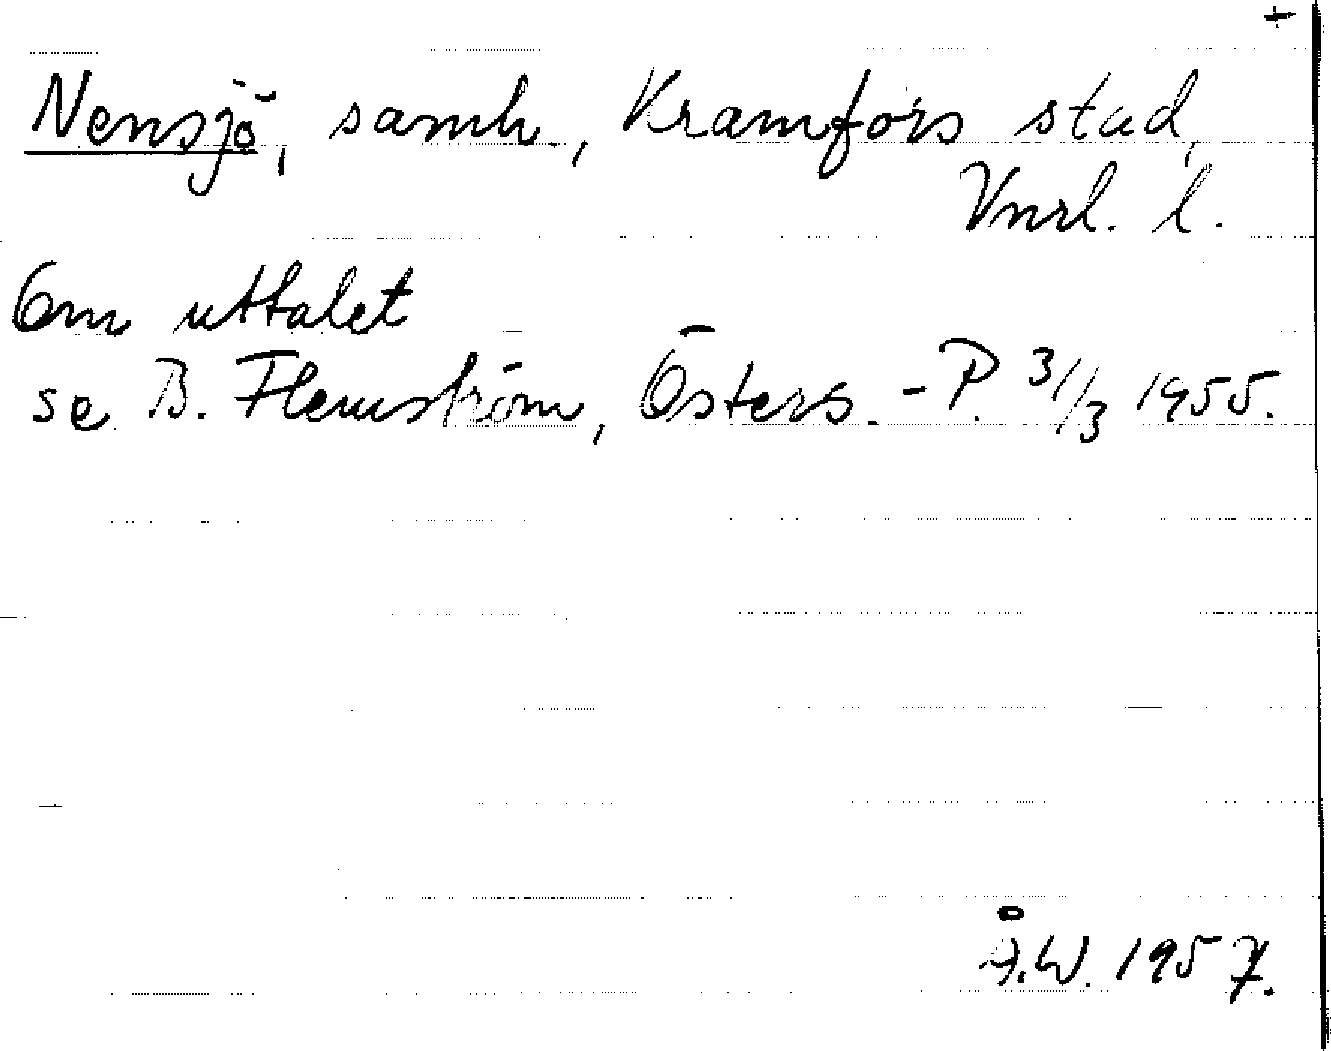 +
Nensjö, samh., Kramfors stad,
Vnrl. l.
Om uttalet
se B. Flemström, Östers.-P. 3/3 1955.
Å.W. 1957.